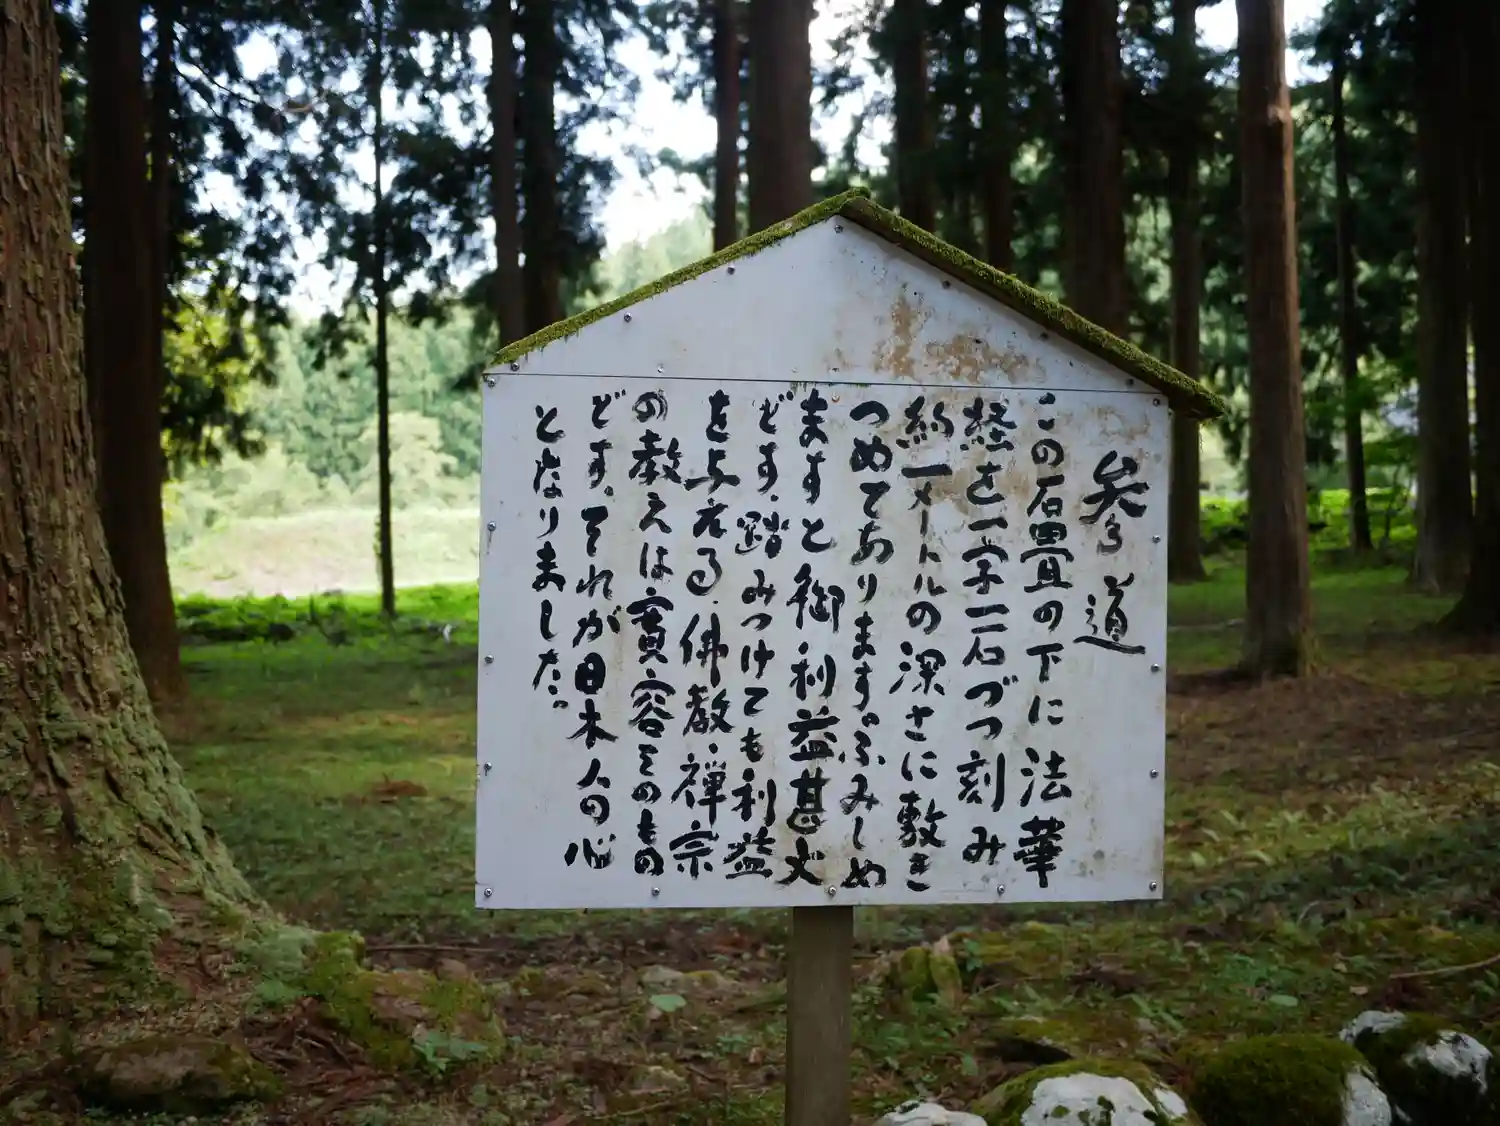 参る道
この石畳の下に法華
経を一字一石づつ刻み
約一メートルの深さに敷き
つめてあります。ふみしめ
ますと御利益甚大
です、踏みつけても利益
を与える、佛教、禅宗
の教えは實容そのもの
です、それが日本人の心
となりました。